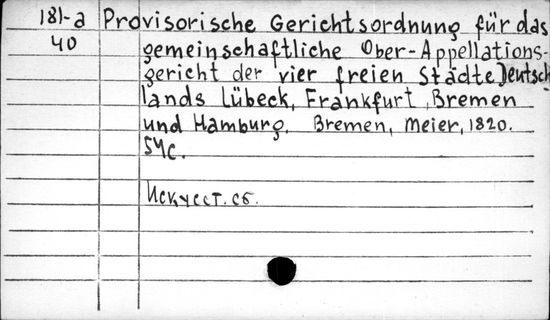 181-a Provisorische Gerichtsordnung für das
40 gemeinschaftliche Ober-Appellations-
gericht der vier freien Städte Deutsch
lands Lübeck, Frankfurt, Bremen
und Hamburg. Bremen, Meier, 1820.
54c.
Искусст. сб.